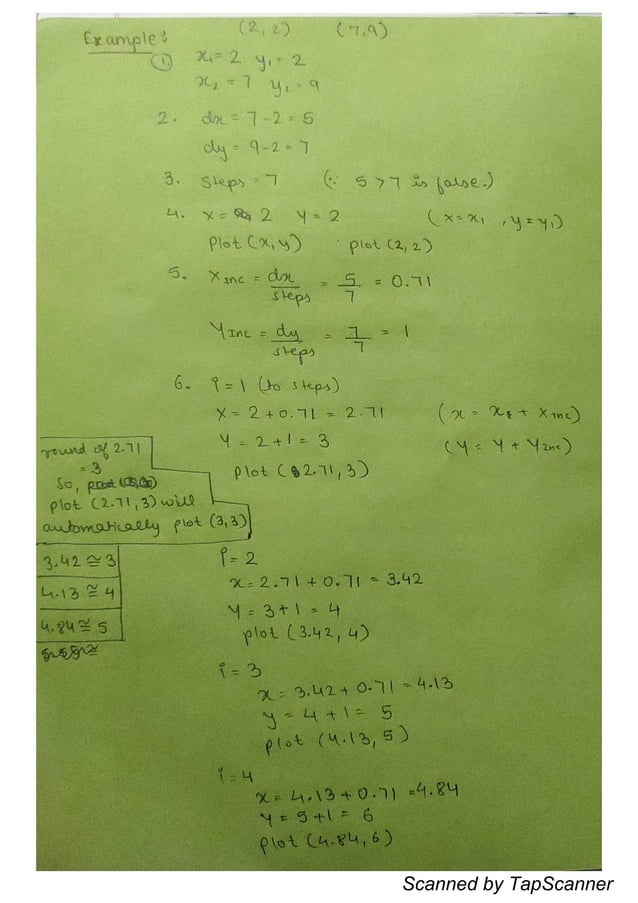 Example: (2,2) (7,9)
① x₁=2 y₁=2
x₂=7 y₂=9
2. dx = 7-2 = 5
dy = 9-2 = 7
3. Steps = 7 (∵ 5>7 is false.)
4. X = 2 Y = 2 (x=x₁, y=y₁)
Plot (x,y) plot (2,2)
5. XInc = dx/steps = 5/7 = 0.71
YInc = dy/steps = 7/7 = 1
6. i=1 (to steps)
X = 2+0.71 = 2.71 (x = x + xInc)
Y = 2+1 = 3 (Y = Y + YInc)
plot (2.71, 3)
round of 2.71
= 3
So,
plot (2.71, 3) will
automatically plot (3,3)
3.42 ≅ 3
4.13 ≅ 4
4.84 ≅ 5
i=2
x = 2.71 + 0.71 = 3.42
Y = 3+1 = 4
plot (3.42, 4)
i=3
x = 3.42 + 0.71 = 4.13
y = 4+1 = 5
plot (4.13, 5)
i=4
x = 4.13 + 0.71 = 4.84
Y = 5+1 = 6
plot (4.84, 6)
Scanned by TapScanner